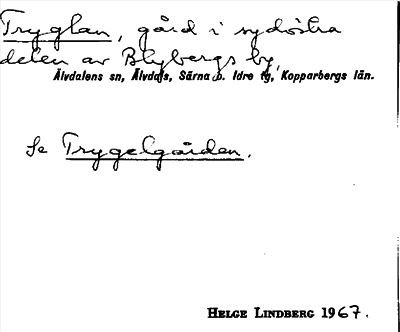 Tryglan, gård i sydöstra
delen av Blybergs by,
Älvdalens sn, Älvdals, Särna o. Idre tg, Kopparbergs län.
Se Trygelgården.
HELGE LINDBERG 1967.